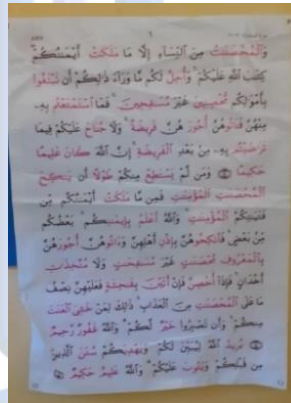 وَالْمُحْصَنَاتُ مِنَ النِّسَاءِ إِلَّا مَا مَلَكَتْ أَيْمَانُكُمْ
كِتَابَ اللَّهِ عَلَيْكُمْ وَأُحِلَّ لَكُمْ مَا وَرَاءَ ذَلِكُمْ أَنْ تَبْتَغُوا
بِأَمْوَالِكُمْ مُحْصِنِينَ غَيْرَ مُسَافِحِينَ فَمَا اسْتَمْتَعْتُمْ بِهِ
مِنْهُنَّ فَآتُوهُنَّ أُجُورَهُنَّ فَرِيضَةً وَلَا جُنَاحَ عَلَيْكُمْ فِيمَا
تَرَاضَيْتُمْ بِهِ مِنْ بَعْدِ الْفَرِيضَةِ إِنَّ اللَّهَ كَانَ عَلِيمًا
حَكِيمًا وَمَنْ لَمْ يَسْتَطِعْ مِنْكُمْ طَوْلًا أَنْ يَنْكِحَ
الْمُحْصَنَاتِ الْمُؤْمِنَاتِ فَمِنْ مَا مَلَكَتْ أَيْمَانُكُمْ مِنْ
فَتَيَاتِكُمُ الْمُؤْمِنَاتِ وَاللَّهُ أَعْلَمُ بِإِيمَانِكُمْ بَعْضُكُمْ
مِنْ بَعْضٍ فَانْكِحُوهُنَّ بِإِذْنِ أَهْلِهِنَّ وَآتُوهُنَّ أُجُورَهُنَّ
بِالْمَعْرُوفِ مُحْصَنَاتٍ غَيْرَ مُسَافِحَاتٍ وَلَا مُتَّخِذَاتِ
أَخْدَانٍ فَإِذَا أُحْصِنَّ فَإِنْ أَتَيْنَ بِفَاحِشَةٍ فَعَلَيْهِنَّ نِصْفُ
مَا عَلَى الْمُحْصَنَاتِ مِنَ الْعَذَابِ ذَلِكَ لِمَنْ خَشِيَ الْعَنَتَ
مِنْكُمْ وَأَنْ تَصْبِرُوا خَيْرٌ لَكُمْ وَاللَّهُ غَفُورٌ رَحِيمٌ
يُرِيدُ اللَّهُ لِيُبَيِّنَ لَكُمْ وَيَهْدِيَكُمْ سُنَنَ الَّذِينَ
مِنْ قَبْلِكُمْ وَيَتُوبَ عَلَيْكُمْ وَاللَّهُ عَلِيمٌ حَكِيمٌ